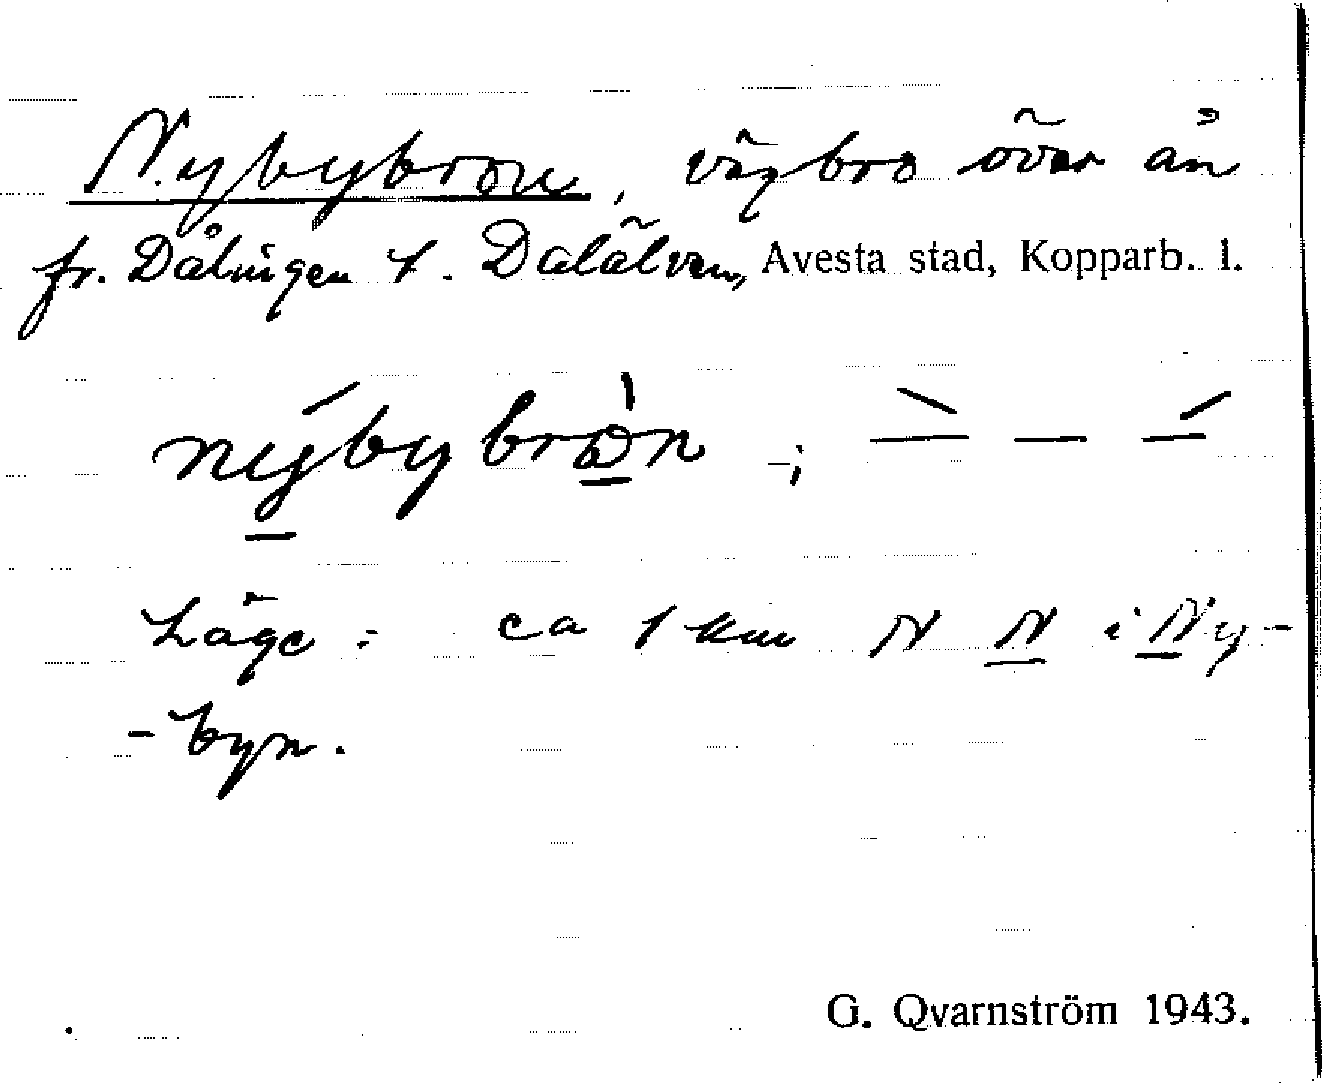 Nybybron, vägbro över ån
fr. Dålningen t. Dalälven, Avesta stad, Kopparb. l.
nýbybròn -;
Läge: ca 1 km N N i Ny-
-byn.
G. Qvarnström 1943.